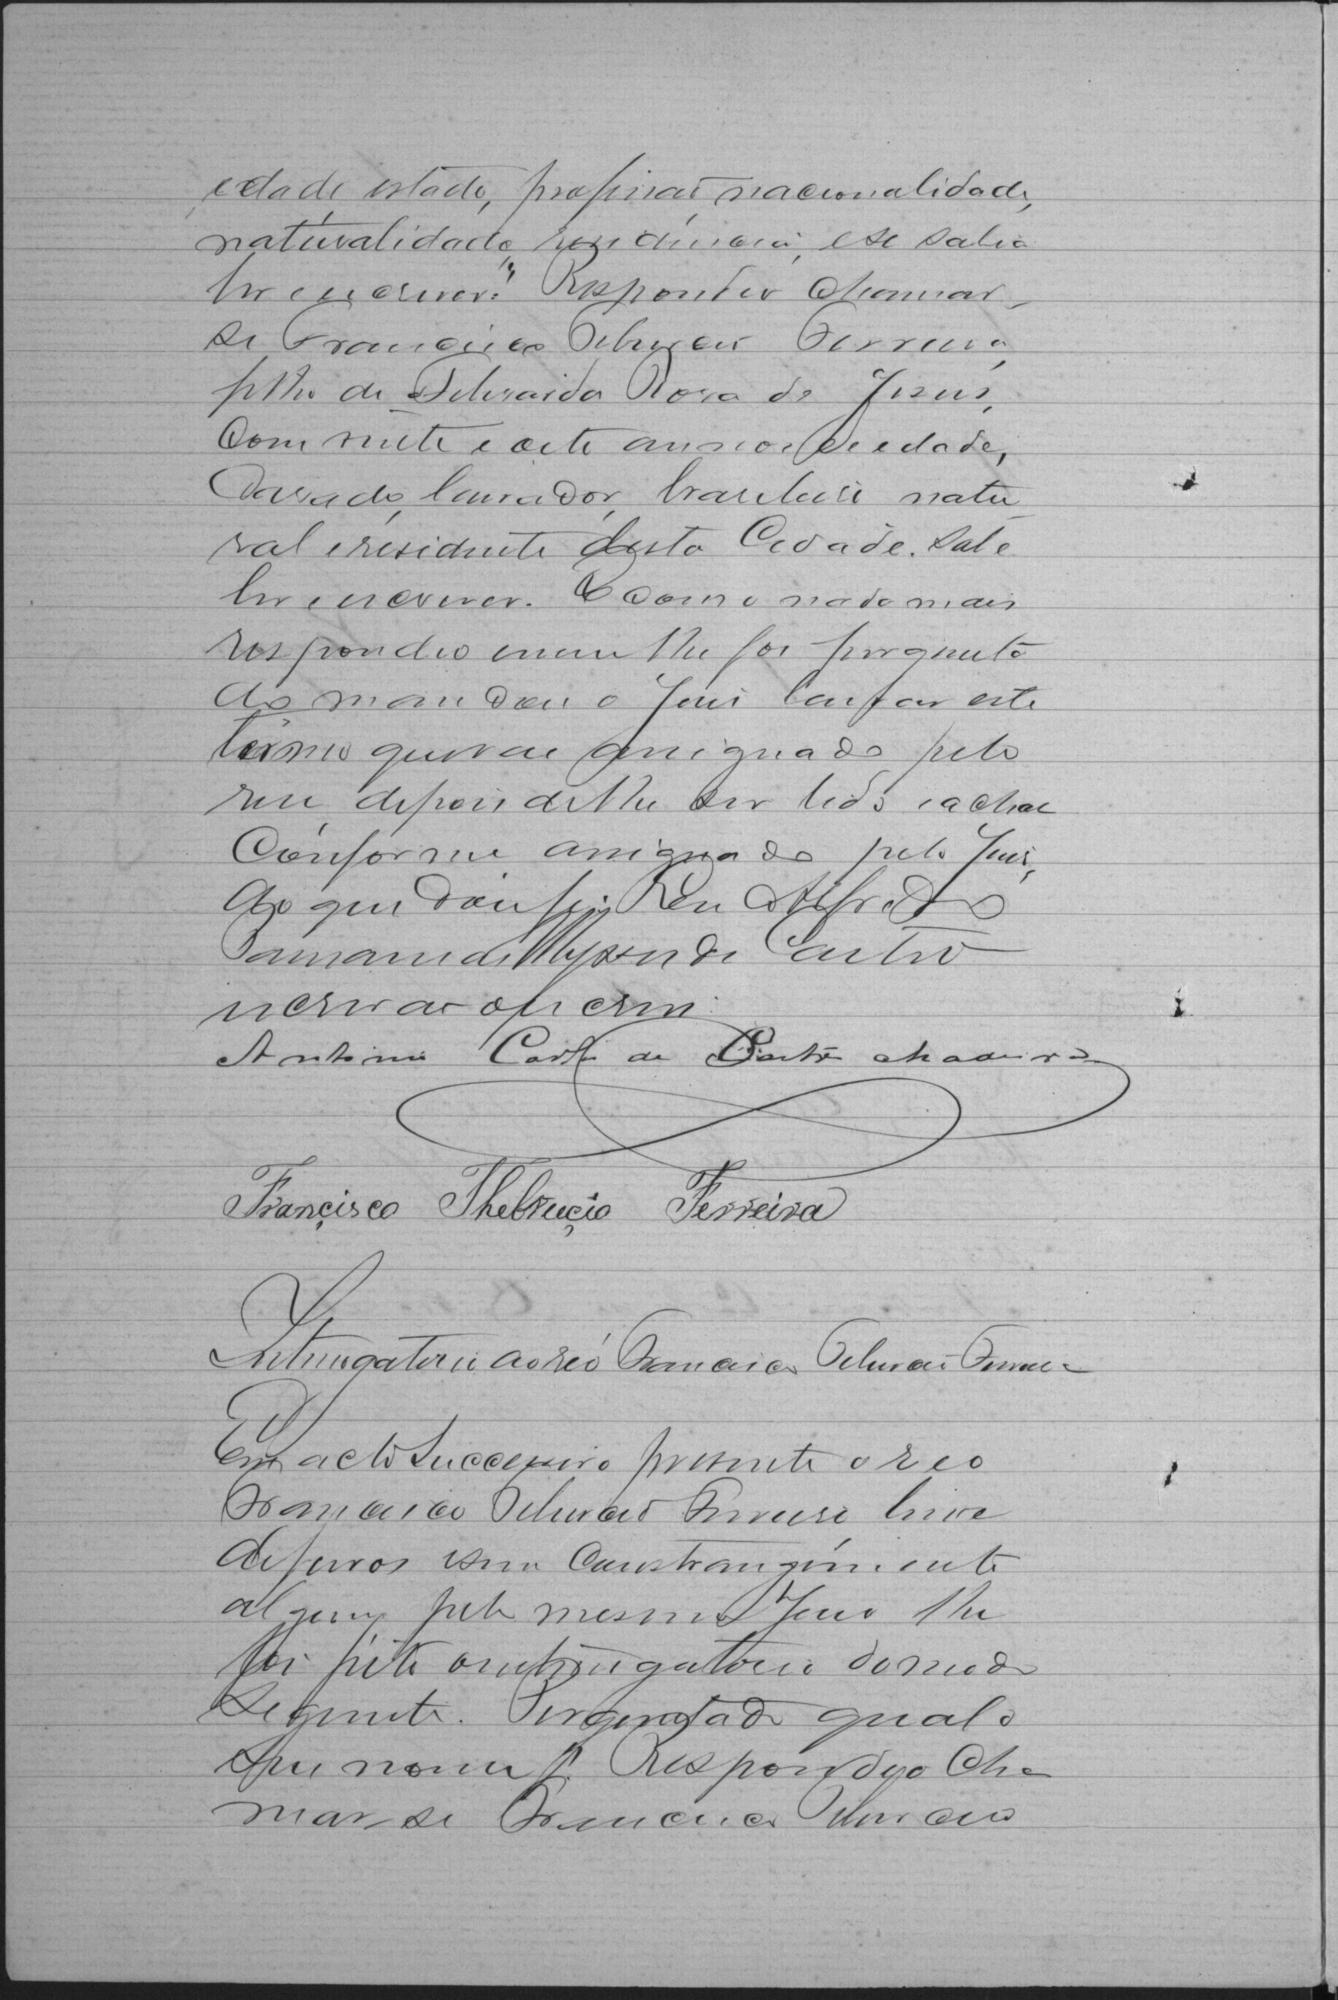 edade estado, profissão, nacionalidade,
naturalidade, residencia, e se sabia
ler e escrever? Respondeo chamar-
se Francisco Tebucio Ferreira,
filho de Rosa de Jesus,
com vinte e oito annos de edade,
Casado, lavrador, brasileiro natu
ral e residente desta Cidade. Sabe
ler e escrever. E como nada mais
respondeo e nem lhe foi pergunta
do mandou o Juis lavrar este
termo que vae assignado pelo
reu, depois de lhe ser lido e achar
Conforme assignado pelo Juis,
do que dou fé. Eu Alfredo
de Castro
escrivão o escrevi.
Antonio de Castro Madeira
Françisco Thebruçio Ferreira
Interrogatorio ao reo Francisco Tebucio Ferreira
Em acto Successivo presente o reo
Francisco Tebucio Ferreira livre
de ferros e sem Constrangimento
algum pelo mesmo Juis lhe
foi feito o interrogatorio do modo
seguinte. Perguntado qual o
seu nome? Respondeo Cha
mar-se Francisco Tebucio